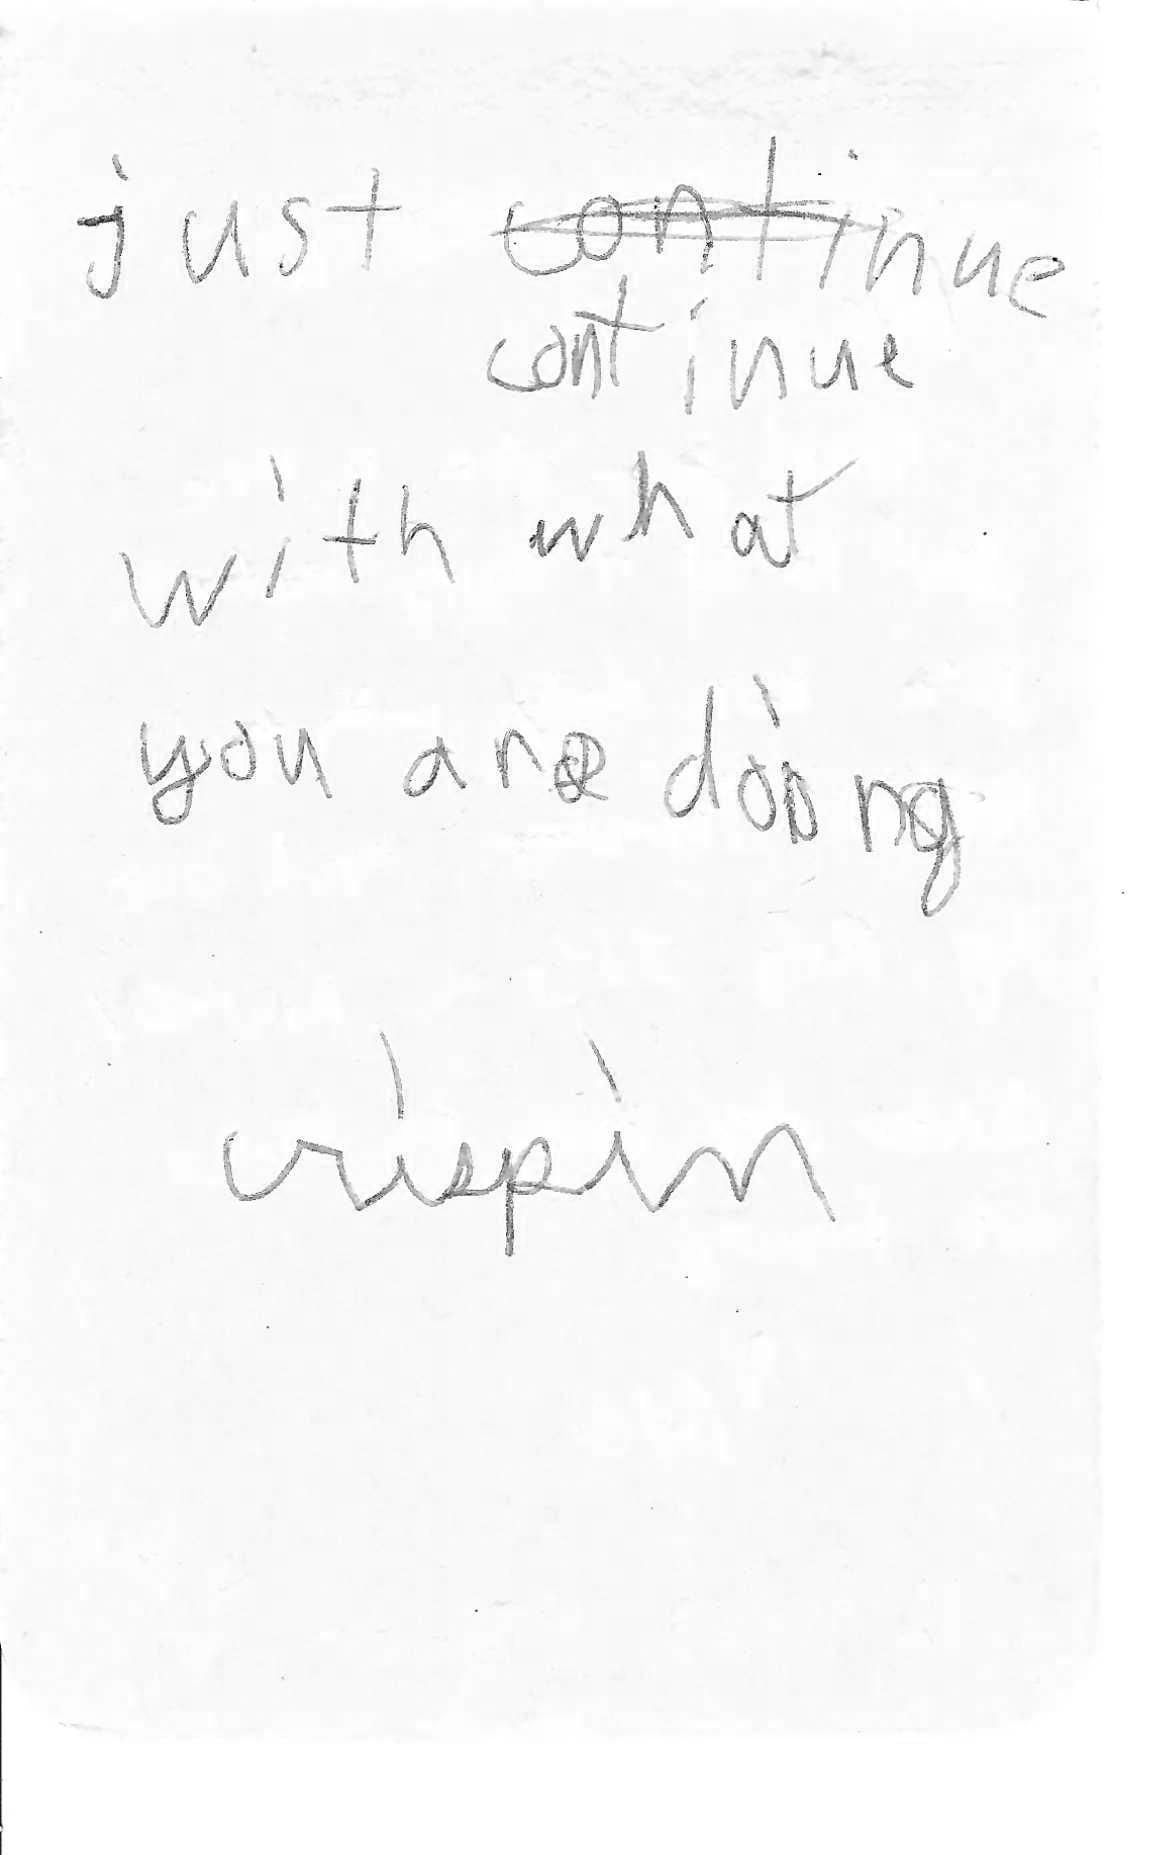 just continue
continue
with what
you are doing
crispin